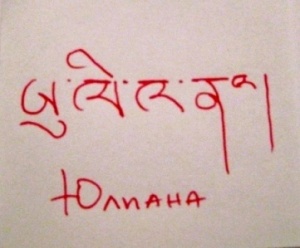 ཡུ་ལི་ཨ་ན།
Юлиана